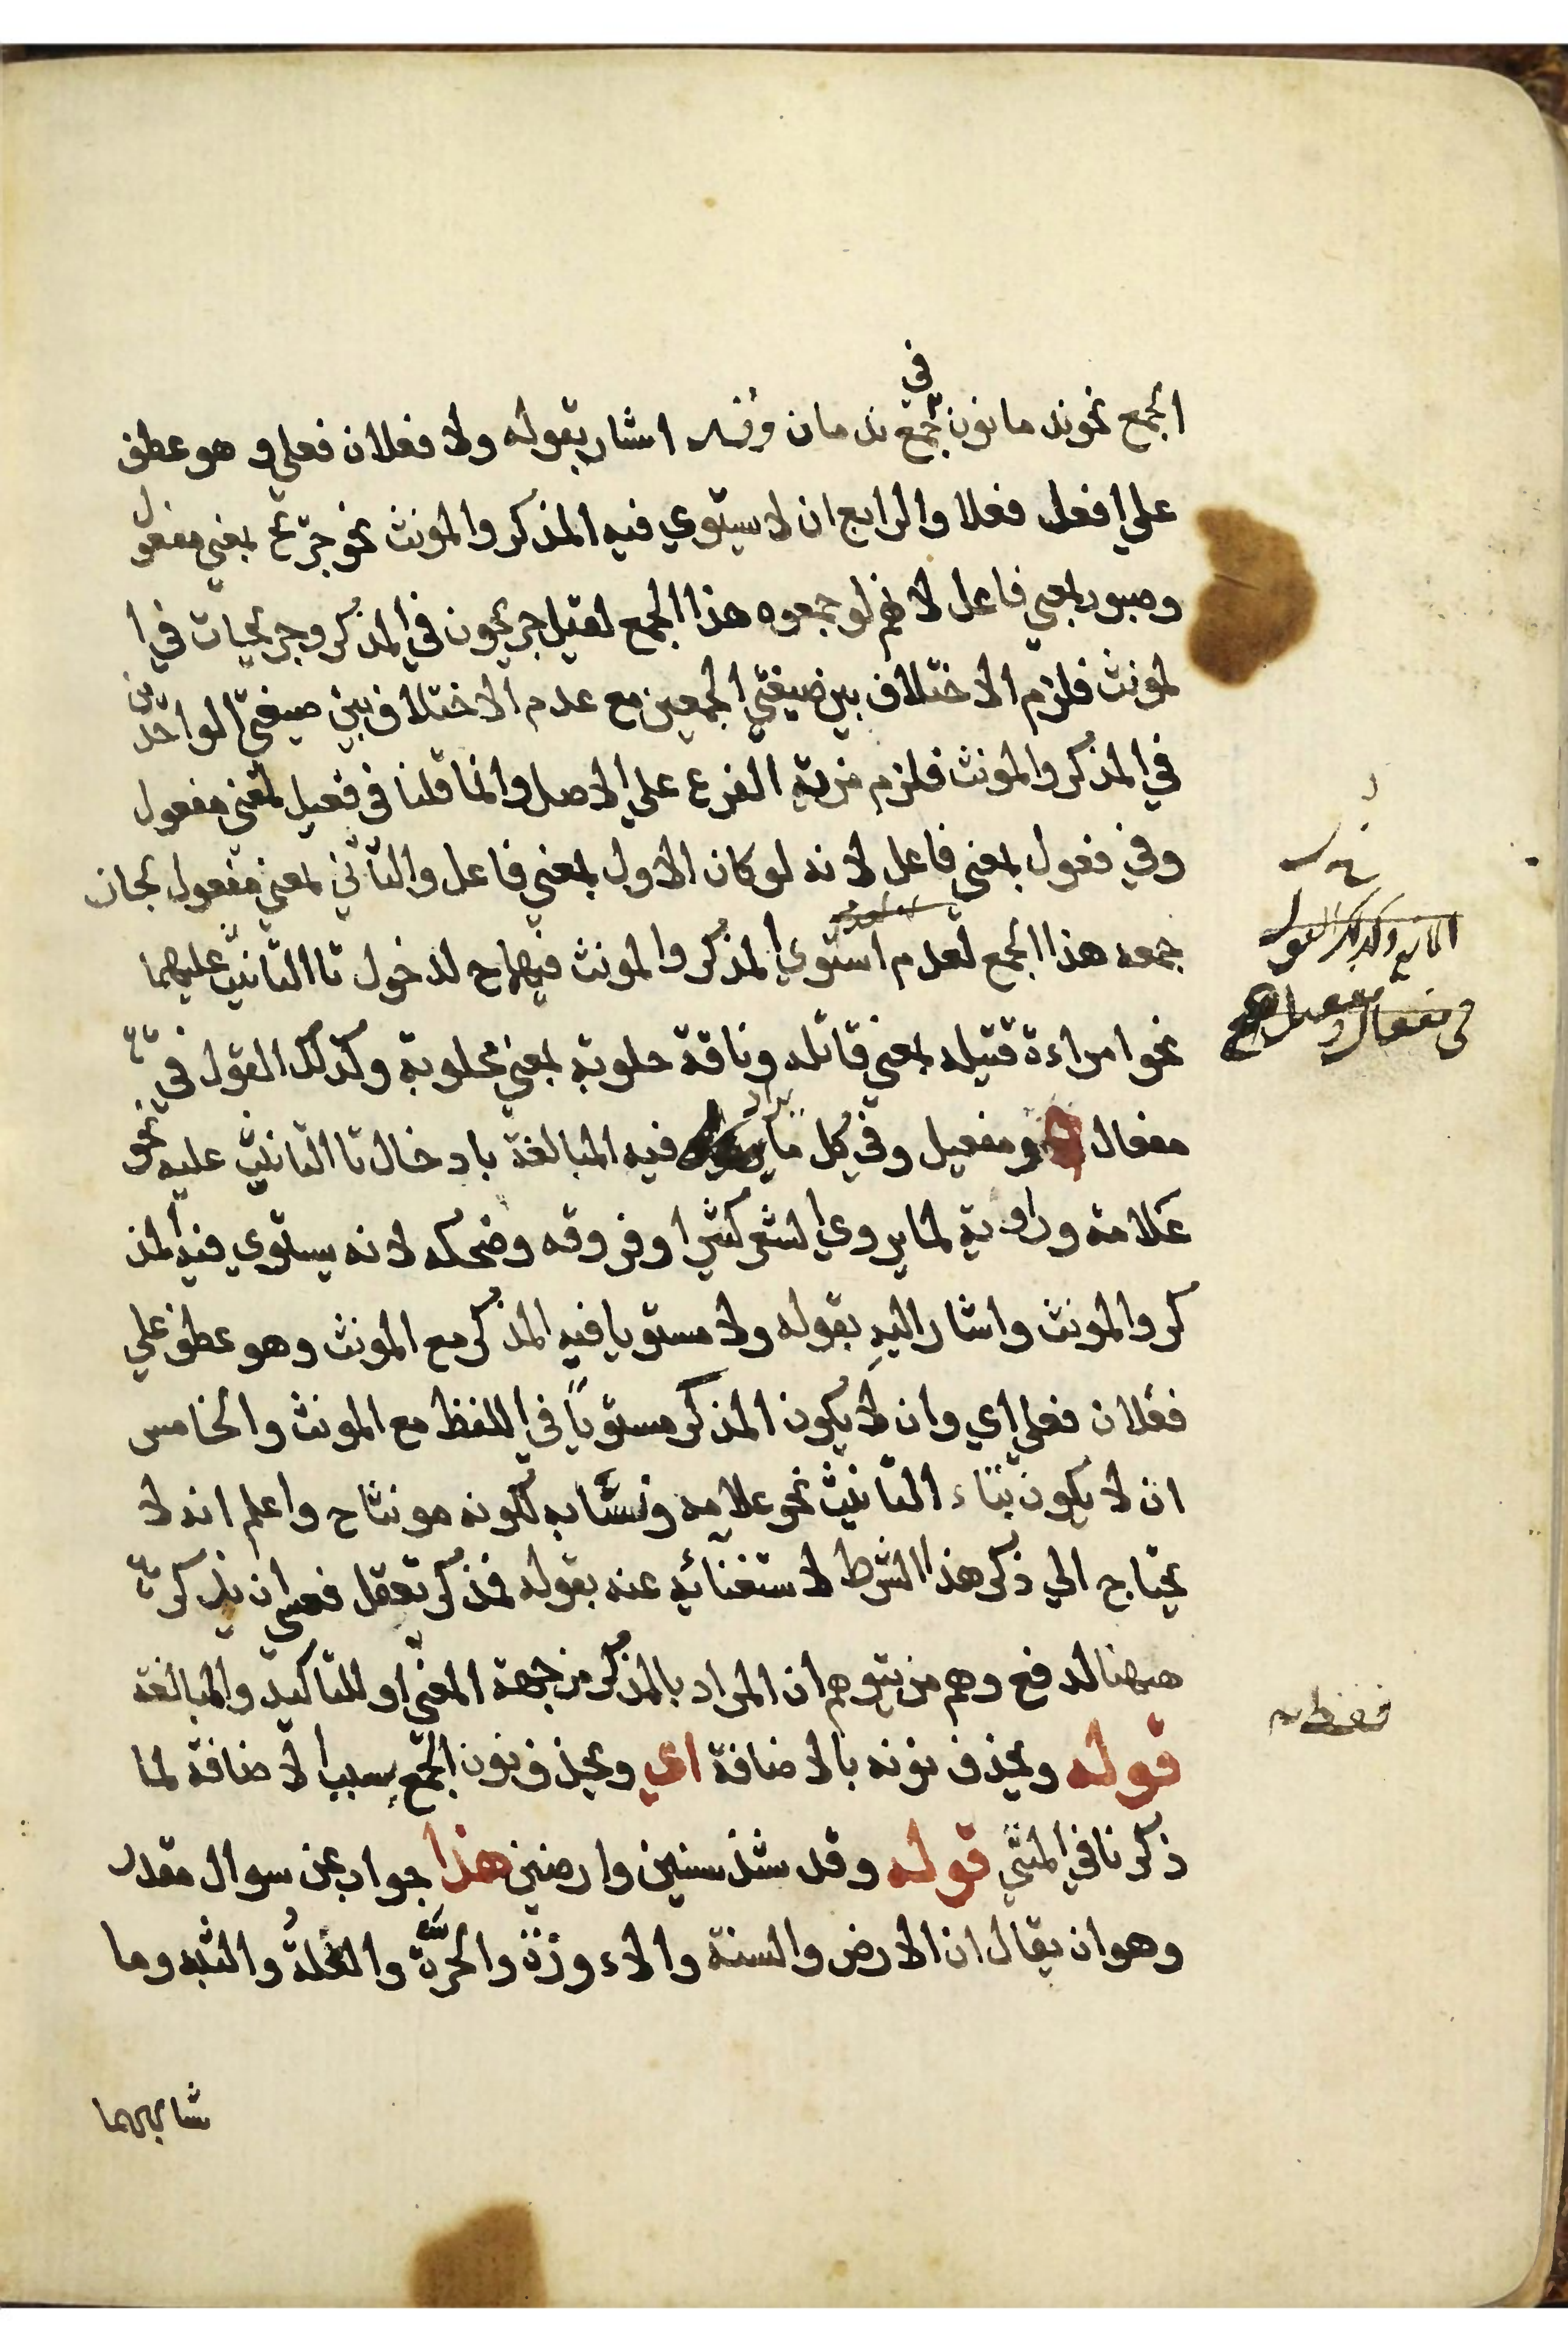 في
الجمع نحو ندمانون جمع ندمان اشار بقوله ولا فعلان فعلي و هو عطف
علي افعل فعلا والرابع ان لا يستوي فيه المذكر والمونث نحو جريح بمعني مفعول
وصبور بمعني فاعل لانهم لو جمعوه هذا الجمع لقيل جريحون في المذكر وجريحات في ا
لمونث فلزم الاختلاف بين صيغتي الجمعين مع عدم الاختلاف بين صيغتي الواحدين
في المذكر والمونث فلزم مزية الفرع علي الاصل وانما قلنا في فعيل بمعني مفعول
وفي فعول بمعني فاعل لانه لو كان الاول بمعني فاعل والثاني بمعني مفعول لجاز
جمعه هذا الجمع لعدم استوي المذكر والمونث فيهما ح لدخول تا التانيث عليهما
نحو امراءة قتيله بمعني قاتله وناقة حلوبة بمعني محلوبة وكذلك القول في
مفعال ومفعيل وفي كل ما يراد فيه المبالغة بادخال تا التانيث عليه نحو
علامة وراوية لما يروي الشعر كثيرا وفروقه وضحكه لانه يستوي فيه المذ
كر والمونث واشار اليه بقوله ولا مستويا فيه المذكر مع المونث وهو عطف علي
فعلان فعلي اي وان لا يكون المذكر مستويًا في اللفظ مع المونث والخامس
ان لا يكون بتاء التانيث نحو علامه ونسّابه لكونه مونثا ح واعلم انه لا
يحتاج الي ذكر هذا الشرط لاستغنائه عنه بقوله فمذكر تعقل فعسي ان يذكر
ههنا لدفع وهم من يتوهم ان المراد بالمذكر من جهة المعني او للتاكيد والمبالغة
قوله ويحذف نونه بالاضافة اي ويحذف نون الجمع بسبب الاضافة لما
ذكرنا في المثني قوله وقد شذ سنين وارضين هذا جواب عن سوال مقدر
وهو ان يقال ان الارض والسنة والاءوزة والحرّة والثبه وما
شابههما
وكذلك القول
في مفعال و